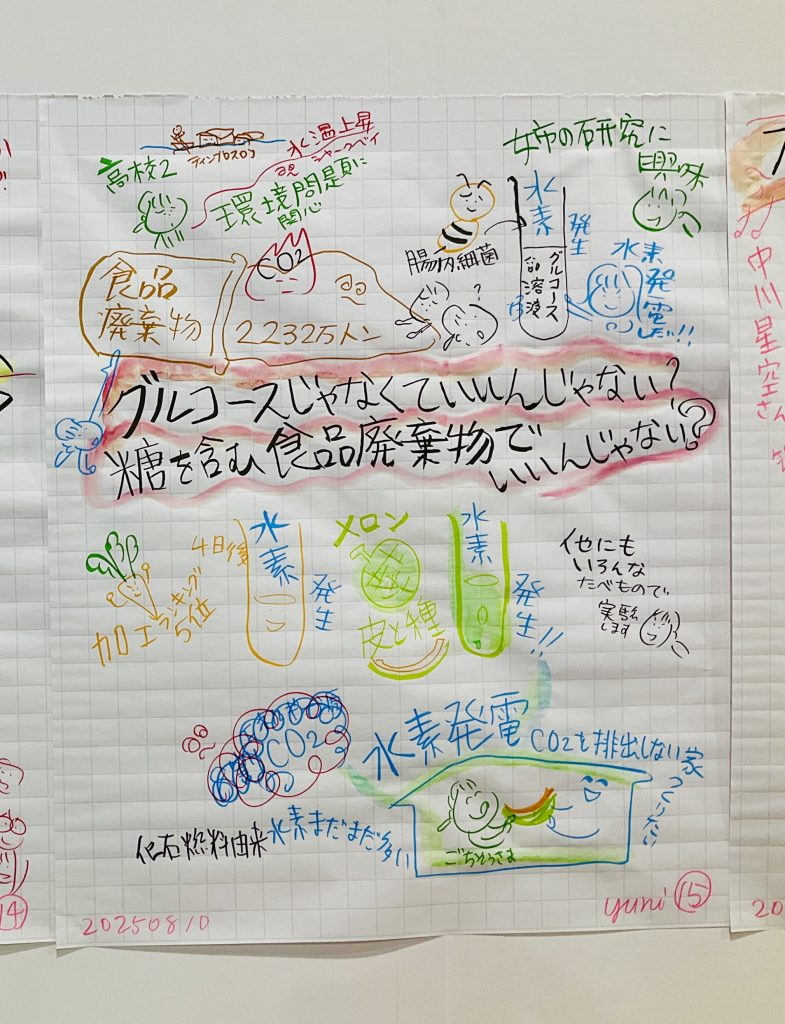 高校2
水温上昇
シャークベイ
環境問題に
関心
姉の研究に
興味
食品
廃棄物
CO2
2232万トン
腸内細菌
水素
発生
グルコース
溶液
水素
発電
したい!!
グルコースじゃなくていいんじゃない?
糖を含む食品廃棄物で
いいんじゃない?
4日後
水素
発生
加工ランキング
5位
メロン
皮と種
水素
発生!!
他にも
いろんな
たべもので
実験
します
CO2
化石燃料由来水素まだまだ多い
水素発電
CO2を排出しない家
つくりたい
ごちそうさま
20250810
yuni 15
14
中川星空さん
20